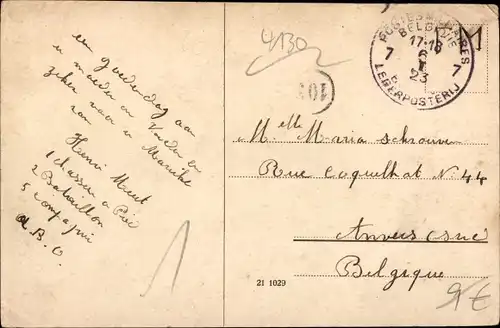 een goedendag aan
u moeder en Vader en
zeker voor u Marieke
van
Henri
1 chasseur a Pied
2 Bataillon
5 compagnie
A.B.O.
4130
POSTES MILITAIRES
BELGIQUE
17-18
7 6 7
I
23
LEGERPOSTERIJ
F M
101
Melle Maria Schrouven
Rue Coquelhat N. 44
Anvers (Sud)
Belgique
21 1029
9€